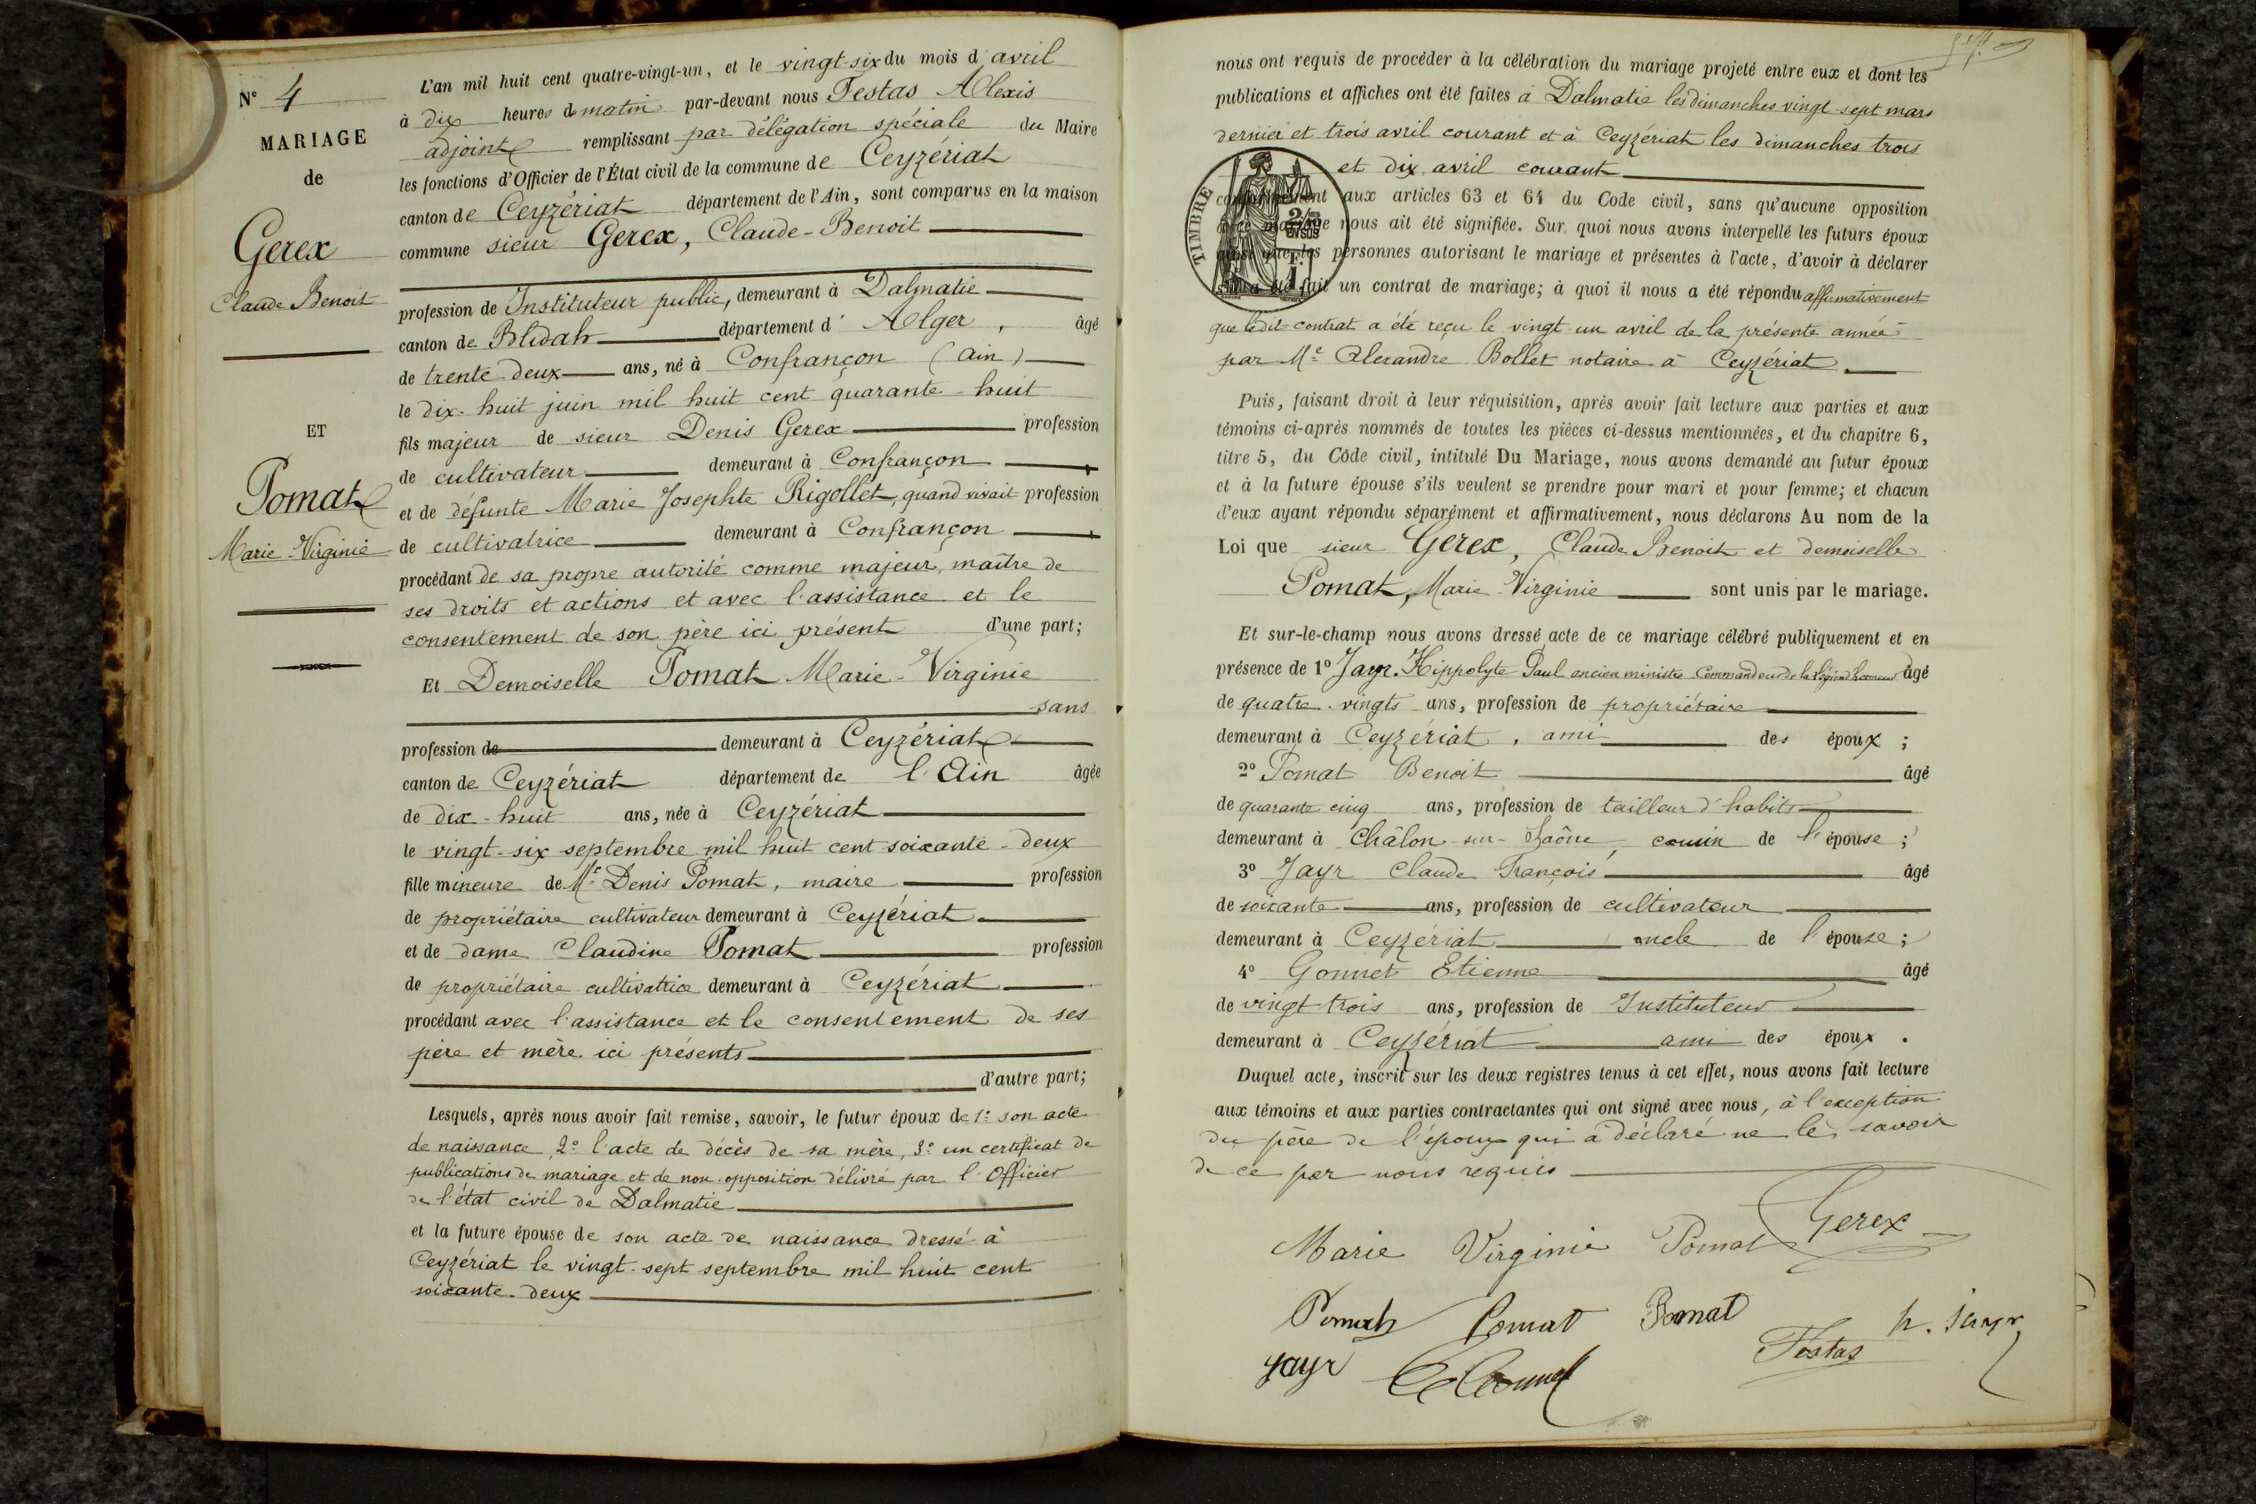 N° 4
MARIAGE
de
Gerex
Claude Benoit
ET
Pomat
Marie-Virginie
L'an mil huit cent quatre-vingt-un, et le vingt-six du mois d'avril
à dix heures de matin par-devant nous Festas Alexis
adjoint remplissant par délégation spéciale du Maire
les fonctions d'Officier de l'État civil de la commune de Ceyzériat
canton de Ceyzériat département de l'Ain, sont comparus en la maison
commune sieur Gerex, Claude-Benoit
profession de Instituteur public, demeurant à Dalmatie
canton de Blidah département d'Alger, âgé
de trente deux ans, né à Confrançon (Ain)
le dix-huit juin mil huit cent quarante-huit
fils majeur de sieur Denis Gerex profession
de cultivateur demeurant à Confrançon
et de défunte Marie Josephte Rigollet, quand vivait profession
de cultivatrice demeurant à Confrançon
procédant de sa propre autorité comme majeur, maître de
ses droits et actions et avec l'assistance et le
consentement de son père ici présent d'une part;
Et Demoiselle Pomat Marie-Virginie
sans
profession de demeurant à Ceyzériat
canton de Ceyzériat département de l'Ain âgée
de dix-huit ans, née à Ceyzériat
le vingt-six septembre mil huit cent soixante-deux
fille mineure de Mr Denis Pomat, maire profession
de propriétaire cultivateur demeurant à Ceyzériat
et de dame Claudine Pomat profession
de propriétaire cultivatrice demeurant à Ceyzériat
procédant avec l'assistance et le consentement de ses
père et mère ici présents
d'autre part;
Lesquels, après nous avoir fait remise, savoir, le futur époux de 1° son acte
de naissance, 2° l'acte de décès de sa mère, 3° un certificat de
publications de mariage et de non-opposition délivré par l'Officier
de l'état civil de Dalmatie
et la future épouse de son acte de naissance dressé à
Ceyzériat le vingt-sept septembre mil huit cent
soixante-deux
nous ont requis de procéder à la célébration du mariage projeté entre eux et dont les
publications et affiches ont été faites à Dalmatie les dimanches vingt-sept mars
dernier et trois avril courant et à Ceyzériat les dimanches trois
et dix avril courant
TIMBRE
conformément aux articles 63 et 64 du Code civil, sans qu'aucune opposition
à ce mariage nous ait été signifiée. Sur quoi nous avons interpellé les futurs époux
ainsi que les personnes autorisant le mariage et présentes à l'acte, d'avoir à déclarer
s'il a été fait un contrat de mariage; à quoi il nous a été répondu affirmativement
que ledit contrat a été reçu le vingt-un avril de la présente année
par Me Alexandre Bollet notaire à Ceyzériat.
Puis, faisant droit à leur réquisition, après avoir fait lecture aux parties et aux
témoins ci-après nommés de toutes les pièces ci-dessus mentionnées, et du chapitre 6,
titre 5, du Code civil, intitulé Du Mariage, nous avons demandé au futur époux
et à la future épouse s'ils veulent se prendre pour mari et pour femme; et chacun
d'eux ayant répondu séparément et affirmativement, nous déclarons Au nom de la
Loi que sieur Gerex, Claude Benoit et demoiselle
Pomat, Marie-Virginie sont unis par le mariage.
Et sur-le-champ nous avons dressé acte de ce mariage célébré publiquement et en
présence de 1° Jayr. Hippolyte Paul ancien ministre Commandeur de la Légion d'honneur âgé
de quatre-vingts ans, profession de propriétaire
demeurant à Ceyzériat, ami des époux;
2° Pomat Benoit âgé
de quarante cinq ans, profession de tailleur d'habits
demeurant à Châlon-sur-Saône, cousin de l'épouse;
3° Jayr Claude François âgé
de soixante ans, profession de cultivateur
demeurant à Ceyzériat oncle de l'épouse;
4° Gonnet Etienne âgé
de vingt-trois ans, profession de Instituteur
demeurant à Ceyzériat ami des époux.
Duquel acte, inscrit sur les deux registres tenus à cet effet, nous avons fait lecture
aux témoins et aux parties contractantes qui ont signé avec nous, à l'exception
du père de l'époux qui a déclaré ne le savoir
de ce par nous requis
Marie Virginie Pomat Gerex
Pomat Pomat Pomat h. Jayr
Jayr Festas